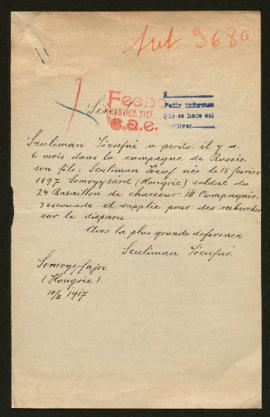 Art 9680
Sire!
Fecha
18 OCT. 1917
e.a.e.
Pedir informes
que se hace así
Szuliman Józsefné a perdu il y a
6 mois dans la campagne de Russie
son fils; Szuliman József née le 15 février
1897 (Hongrie) soldat du
24 Bataillon de chasseur III Compagnie
3 escouade et supplie pour des recherches
sur le disparu
Avec la plus grande deference
Szuliman Józsefné
(Hongrie)
1917